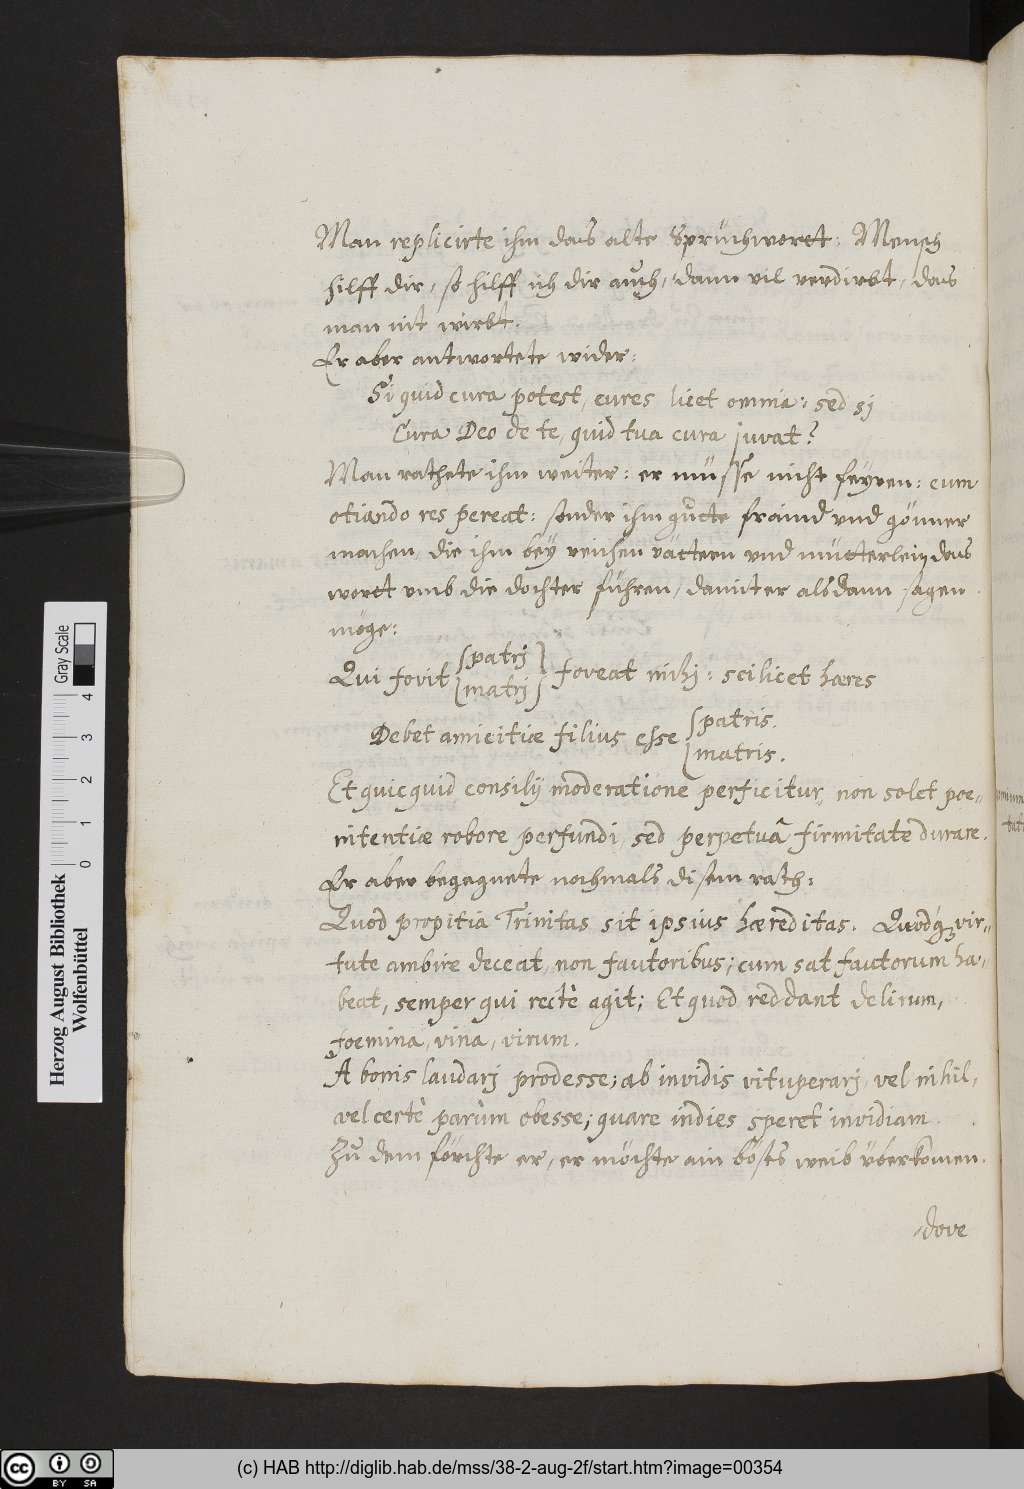 Man replicirte ihm das alte Sprüchwortt: Mensch
hilff dir, so hilff ich dir auch, dann vil verdirbt, das
man nit wirbt.
Er aber antwortete wider:
Si quid cura potest, cures licet omnia: sed si
Cura Deo de te, quid tua cura juvat?
Man rathete ihm weiter: er müsse nicht feyren: cum
otiando res pereat: sonder ihm gutte fraind vnd gönner
machen, die ihm bey reichen vättern vnd mütterlein das
wortt vmb die dochter führen, damit er alsdann sagen
möge:
Qui fovit {patrj / matrj} foveat mihj: scilicet hæres
Debet amicitiæ filius esse {patris. / matris.
Et quicquid consilij moderatione perficitur, non solet poe-
nitentiæ robore perfundi, sed perpetuâ firmitate durare.
Er aber begegnete nochmals disem rath:
Quod propitia Trinitas sit ipsius hæreditas. Quodq; vir-
tute ambire deceat, non fautoribus; cum sat fautorum ha-
beat, semper qui rectè agit; Et quod reddant delirum,
foemina, vina, virum.
A bonis laudarj prodesse; ab invidis vituperarj, vel nihil,
vel certè parùm obesse; quare indies speret invidiam.
Zu dem förchte er, er möchte ain böses weib überkomen.
dove
Herzog August Bibliothek
Wolfenbüttel
0 1 2 3 4
Gray Scale
cc BY SA
(c) HAB http://diglib.hab.de/mss/38-2-aug-2f/start.htm?image=00354